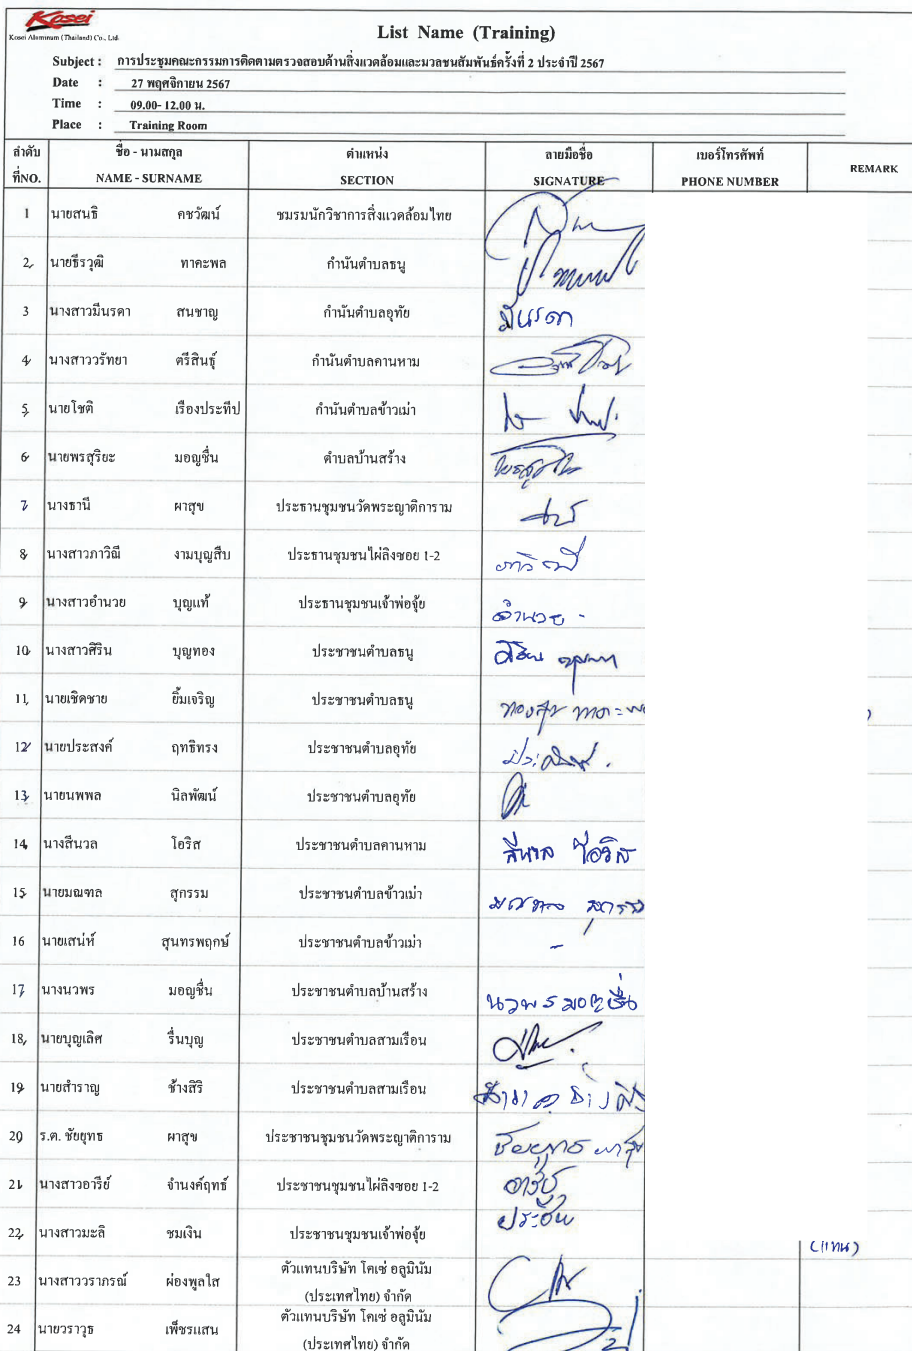 Kosei
Kosei Aluminum (Thailand) Co., Ltd.
List Name (Training)
Subject : การประชุมคณะกรรมการติดตามตรวจสอบด้านสิ่งแวดล้อมและมวลชนสัมพันธ์ครั้งที่ 2 ประจำปี 2567
Date : 27 พฤศจิกายน 2567
Time : 09.00- 12.00 น.
Place : Training Room
ลำดับ ชื่อ - นามสกุล ตำแหน่ง ลายมือชื่อ เบอร์โทรศัพท์ REMARK
ที่NO. NAME - SURNAME SECTION SIGNATURE PHONE NUMBER
1 นายสนธิ คชวัฒน์ ชมรมนักวิชาการสิ่งแวดล้อมไทย
2 นายธีรวุฒิ ทาคะพล กำนันตำบลธนู
3 นางสาวมีนรดา สนชาญ กำนันตำบลอุทัย มีนรดา
4 นางสาววรัทยา ตรีสินธุ์ กำนันตำบลคานหาม
5 นายโชติ เรืองประทีป กำนันตำบลข้าวเม่า
6 นายพรสุริยะ มอญชื่น ตำบลบ้านสร้าง
7 นางธานี ผาสุข ประธานชุมชนวัดพระญาติการาม
8 นางสาวภาวิณี งามบุญสืบ ประธานชุมชนไผ่ลิงซอย 1-2 ภาวิณี
9 นางสาวอำนวย บุญแท้ ประธานชุมชนเจ้าพ่อจุ้ย อำนวย -
10 นางสาวศิริน บุญทอง ประชาชนตำบลธนู
11 นายเชิดชาย ยิ้มเจริญ ประชาชนตำบลธนู ทองสุข
12 นายประสงค์ ฤทธิทรง ประชาชนตำบลอุทัย
13 นายนพพล นิลพัฒน์ ประชาชนตำบลอุทัย
14 นางสีนวล โอริส ประชาชนตำบลคานหาม สีนวล โอริส
15 นายมณฑล สุกรรม ประชาชนตำบลข้าวเม่า
16 นายเสน่ห์ สุนทรพฤกษ์ ประชาชนตำบลข้าวเม่า -
17 นางนวพร มอญชื่น ประชาชนตำบลบ้านสร้าง นวพร มอญชื่น
18 นายบุญเลิศ รื่นบุญ ประชาชนตำบลสามเรือน
19 นายสำราญ ช้างสิริ ประชาชนตำบลสามเรือน
20 ร.ต. ชัยยุทธ ผาสุข ประชาชนชุมชนวัดพระญาติการาม ชัยยุทธ ผาสุข
21 นางสาวอารีย์ จำนงค์ฤทธ์ ประชาชนชุมชนไผ่ลิงซอย 1-2
22 นางสาวมะลิ ชมเงิน ประชาชนชุมชนเจ้าพ่อจุ้ย (แทน)
23 นางสาววราภรณ์ ผ่องพูลใส ตัวแทนบริษัท โคเซ่ อลูมินัม
(ประเทศไทย) จำกัด
24 นายวราวุธ เพ็ชรแสน ตัวแทนบริษัท โคเซ่ อลูมินัม
(ประเทศไทย) จำกัด